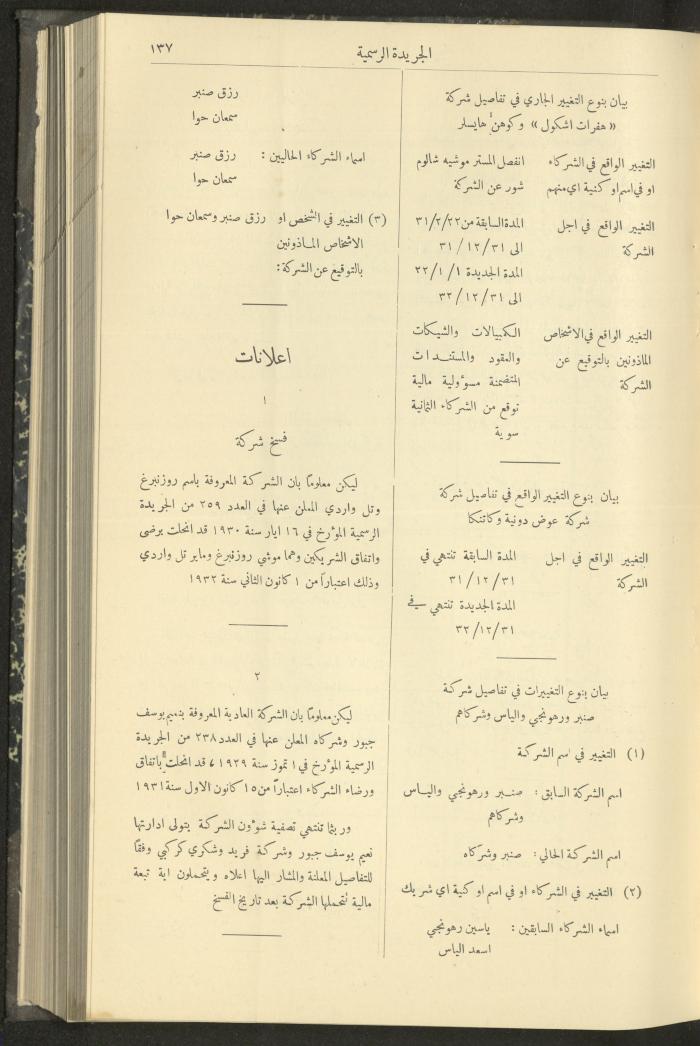 ١٣٧
الجريدة الرسمية
بيان بنوع التغيير الجاري في تفاصيل شركة
« هفرات اشكول » وكوهن هايسلر
التغيير الواقع في الشركاء انفصل المستر موشيه شالوم
او في اسم او كنية اي منهم شور عن الشركة
التغيير الواقع في اجل المدة السابقة من ٣١/٢/٢٢
الشركة الى ٣١ / ١٢ / ٣١
المدة الجديدة ١ / ١ / ٢٢
الى ٣١ / ١٢ / ٣٢
التغيير الواقع في الاشخاص الكمبيالات والشيكات
الماذونين بالتوقيع عن والعقود والمستندات
الشركة المتضمنة مسؤولية مالية
توقع من الشركاء الثانية
سوية
بيان بنوع التغيير الواقع في تفاصيل شركة
شركة عوض دونية وكاتنكا
التغيير الواقع في اجل المدة السابقة تنتهي في
الشركة ٣١ / ١٢ / ٣١
المدة الجديدة تنتهي في
٣٢/١٢/٣١
بيان بنوع التغييرات في تفاصيل شركة
صنبر ورهونجي والياس وشركاهم
(١) التغيير في اسم الشركة
اسم الشركة السابق : صنبر ورهونجي والياس
وشركاهم
اسم الشركة الحالي : صنبر وشركاه
(٢) التغيير في الشركاء او في اسم او كنية اي شريك
اسماء الشركاء السابقين : ياسين رهونجي
اسعد الياس
رزق صنبر
سمعان حوا
اسماء الشركاء الحاليين : رزق صنبر
سمعان حوا
(٣) التغيير في الشخص او رزق صنبر وسمعان حوا
الاشخاص الماذونين
بالتوقيع عن الشركة :
اعلانات
١
فسخ شركة
ليكن معلومًا بان الشركة المعروفة باسم روزنبرغ
وتل واردي المعلن عنها في العدد ٢٥٩ من الجريدة
الرسمية المؤرخ في ١٦ ايار سنة ١٩٣٠ قد انحلت برضى
واتفاق الشريكين وهما موشي روزنبرغ وماير تل واردي
وذلك اعتبارًا من ١ كانون الثاني سنة ١٩٣٢
٢
ليكن معلومًا بان الشركة العادية المعروفة بنعيم يوسف
جبور وشركاه المعلن عنها في العدد ٢٣٨ من الجريدة
الرسمية المؤرخ في ١ تموز سنة ١٩٢٩ ، قد انحلت باتفاق
ورضاء الشركاء اعتبارًا من ١٥ كانون الاول سنة ١٩٣١
وريثما تنتهي تصفية شؤون الشركة يتولى ادارتها
نعيم يوسف جبور وشركة فريد وشكري كركبي وفقًا
للتفاصيل المعلنة والمشار اليها اعلاه ويتحملون اية تبعة
مالية تتحملها الشركة بعد تاريخ الفسخ